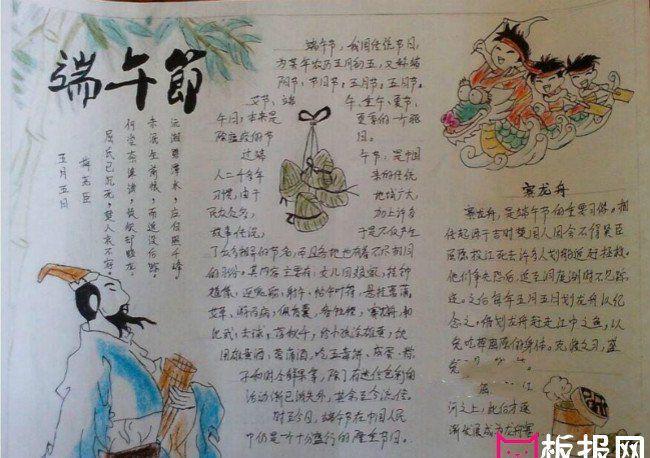 端午節
五月五日
梅尧臣
屈氏已沉死,楚人衷不容。
何尝奈谗谤,徒欲却蛟龙。
未泯生前恨,而追没后踪。
沅湘碧潭水,应自照千峰。
端午节,我国传统节日,
为每年农历五月初五,又称端
阳节、节日节、五月节、五月节。
艾节、端
午、重午、夏节,
午日,本来是
夏季的一个驱
除瘟疫的节
日。
过端
午节,是中国
人二千多年
来的传统
习惯,由于
地域广大,
民众众多,
加上许多
故事传说,
于是不仅产生
了众多相异的节名,而且各地也有着不尽相同
的习俗。其内容主要有:女儿回娘家,挂钟
馗像,迎鬼船、躲午、帖午叶符,悬挂菖蒲、
艾草,游百病,佩香囊,备牲醴,赛龙舟,
比武,击球,荡秋千,给小孩涂雄黄,饮
用雄黄酒、菖蒲酒,吃五毒饼、咸蛋、粽
子和时令鲜果等,除了有迷信色彩的
活动渐已消失外,其余至今流传。
时至今日,端午节在中国人民
中仍是一个十分盛行的隆重节日。
赛龙舟
赛龙舟,是端午节的重要习俗。相
传起源于古时楚国人因舍不得贤臣
屈原投江死去许多人划船追赶拯救。
他们争先恐后,追至洞庭湖时不见踪
迹。之后每年五月五日划龙舟以纪
念之。借划龙舟赶走江中之鱼,以
免吃掉屈原的身体。
河之上,此后才逐
渐发展成为龙舟赛
板报网